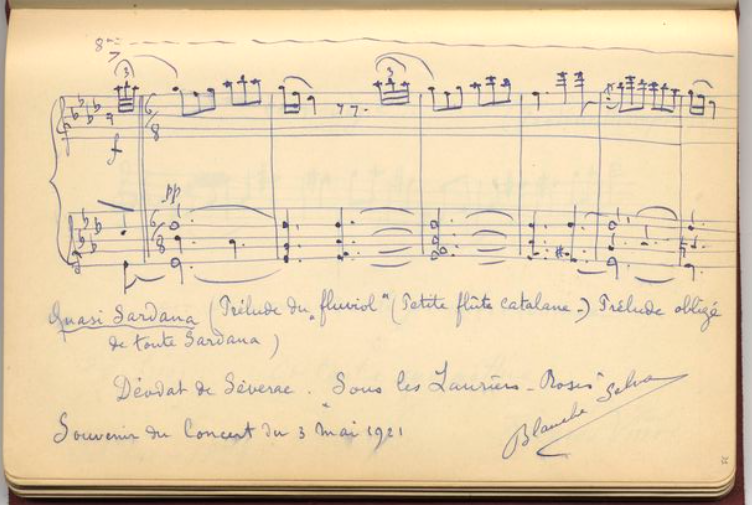 8
3
3
6
8
f
pp
6
8
Quasi Sardana (Prélude du „fluviol" (Petite flûte catalane -) Prélude obligé
de toute Sardana)
Déodat de Séverac. "Sous les Lauriers-Roses"
Souvenir du Concert du 3 Mai 1921
Blanche Selva